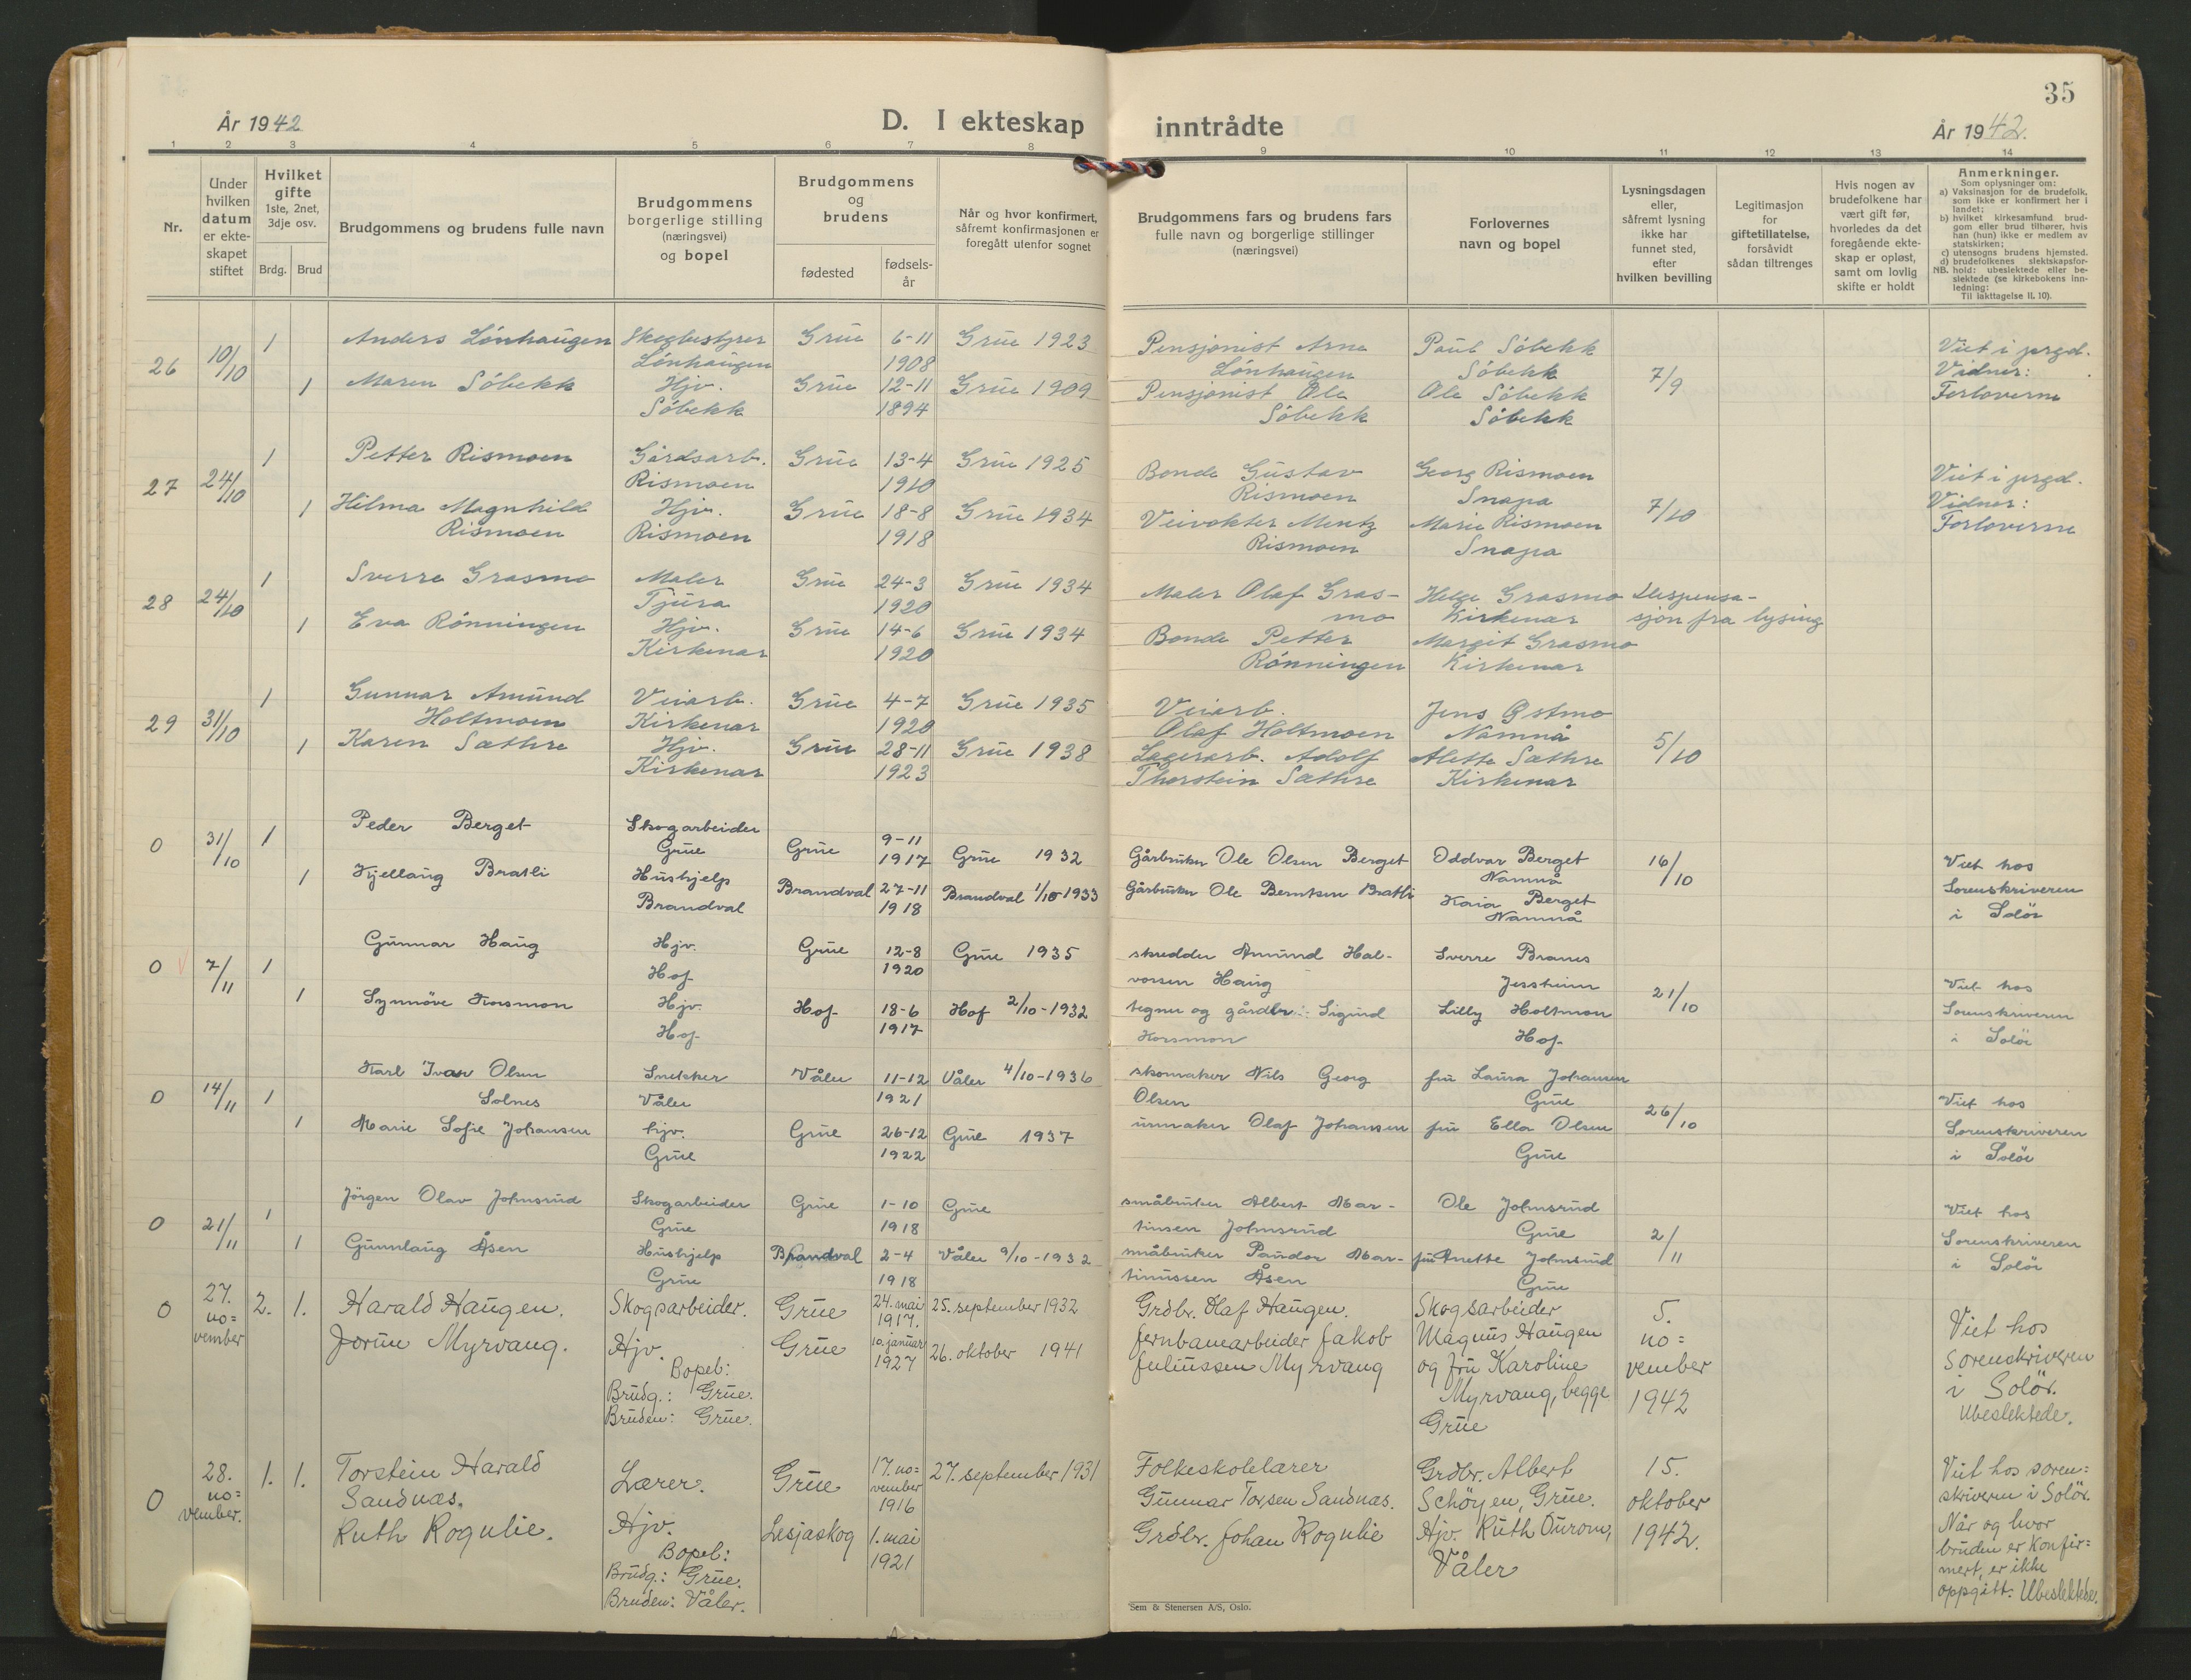 35
År 1942
D. I ekteskap inntrådte
År 1942.
1 2 3 4 5 6 7 8 9 10 11 12 13 14
Nr.
Under hvilken datum er ekteskapet stiftet
Hvilket gifte 1ste, 2net, 3dje osv.
Brdg. Brud
Brudgommens og brudens fulle navn
Brudgommens borgerlige stilling (næringsvei) og bopel
Brudgommens og brudens
fødested
fødsels-år
Når og hvor konfirmert, såfremt konfirmasjonen er foregått utenfor sognet
Brudgommens fars og brudens fars fulle navn og borgerlige stillinger (næringsvei)
Forlovernes navn og bopel
Lysningsdagen eller, såfremt lysning ikke har funnet sted, efter hvilken bevilling
Legitimasjon for giftetillatelse, forsåvidt sådan tiltrenges
Hvis nogen av brudefolkene har vært gift før, hvorledes da det foregående ekteskap er opløst, samt om lovlig skifte er holdt
Anmerkninger.
Som oplysninger om:
a) Vaksinasjon for de brudefolk, som ikke er konfirmert her i landet;
b) hvilket kirkesamfund brudgom eller brud tilhører, hvis han (hun) ikke er medlem av statskirken;
c) utensogns brudens hjemsted.
d) brudefolkenes slektskapsforhold: ubeslektede eller beslektede (se kirkebokens innledning:
NB.
Til iakttagelse II. 10).
26 10/10 1 Anders Lönhaugen Skogbestyrer Grue 6-11 Grue 1923 Pensjonist Arne Paul Söbekk Viet i prgd.
Lönhaugen 1908 Lönhaugen Söbekk 7/9 Vidner:
1 Maren Söbekk Hjv. Grue 12-11 Grue 1909 Pensjonist Ole Ole Söbekk Forloverne
Söbekk 1894 Söbekk Söbekk
27 24/10 1 Petter Rismoen Gårdsarb. Grue 13-4 Grue 1925 Bonde Gustav Georg Rismoen Viet i prgd.
Rismoen 1910 Rismoen Snapa 7/10 Vidner:
1 Hilma Magnhild Hjv. Grue 18-8 Grue 1934 Veivokter Mentz Marie Rismoen Forloverne
Rismoen Rismoen 1918 Rismoen Snapa
28 24/10 1 Sverre Grasmo Maler Grue 24-3 Grue 1934 Maler Olaf Gras- Helge Grasmo Dispensa-
Tjura 1920 mo Kirkenær sjon fra lysing
1 Eva Rönningen Hjv. Grue 14-6 Grue 1934 Bonde Petter Margit Grasmo
Kirkenær 1920 Rönningen Kirkenær
29 31/10 1 Gunnar Amund Veiarb. Grue 4-7 Grue 1935 Veiarb. Jens Østmo
Holtmoen Kirkenær 1920 Olaf Holtmoen Namnå 5/10
1 Karen Sæthre Hjv. Grue 28-11 Grue 1938 Lagerarb. Adolf Alette Sæthre
Kirkenær 1923 Thorstein Sæthre Kirkenær
0 31/10 1 Peder Berget Skogarbeider Grue 9-11 Grue 1932 Gårbruker Ole Olsen Berget Oddvar Berget 16/10 Viet hos
Grue 1917 Namnå Sorenskriveren
1 Kjellaug Bratli Hushjelp Brandval 27-11 Brandval 1/10-1933 Gårbruker Ole Berntsen Bratli Kaia Berget i Solör
Brandval 1918 Namnå
0 7/11 1 Gunnar Haug Hjv. Grue 12-8 Grue 1935 skredder Amund Hal- Sverre Branes Viet hos
Hof 1920 vorsen Haug Jessheim 21/10 Sorenskriveren
1 Synnöve Korsmon Hjv. Hof 18-6 Hof 2/10-1932 tegner og gårdbr. Sigurd Lilly Holtmon i Solör
Hof 1917 Korsmon Hof
0 14/11 1 Karl Ivar Olsen Snekker Våler 11-12 Våler 4/10-1936 skomaker Nils Georg fru Laura Johansen Viet hos
Solnes Våler 1921 Olsen Grue 26/10 Sorenskriveren
1 Marie Sofie Johansen hjv. Grue 26-12 Grue 1937 urmaker Olaf Johansen fru Ella Olsen i Solör
Grue 1922 Grue
0 21/11 1 Jörgen Olav Johnsrud Skogarbeider Grue 1-10 Grue småbruker Albert Mar- Ole Johnsrud Viet hos
Grue 1918 tinsen Johnsrud Grue 2/11 Sorenskriveren
1 Gunnlaug Åsen Hushjelp Brandval 2-4 Våler 9/10-1932 småbruker Paudor Mar- fru Anette Johnsrud i Solör
Grue 1918 tinussen Åsen Grue
0 27. no= vember 2. 1. Harald Haugen. Skogsarbeider. Grue 24. mai 1917. 25. september 1932 Grdbr. Olaf Haugen. Skogsarbeider 5. Viet hos
Jorun Myrvang. Hjv. Grue 10. januar 1927 26. oktober 1941 Jernbanearbeider Jakob Magnus Haugen no= sorenskriveren
Bopel: Juliussen Myrvang og fru Karoline vember i Solör.
Brudg.: Grue. Myrvang, begge 1942 Ubeslektede.
Bruden: Grue. Grue
0 28. no= vember. 1. 1. Torstein Harald Lærer. Grue 17. no= vember 1916 27. september 1931 Folkeskolelærer Grdbr. Albert 15. Viet hos soren=
Sandnæs. Gunnar Torsen Sandnæs. Schöyen, Grue. oktober skriveren i Solör.
Ruth Rogulie. Hjv. Lesjaskog 1. mai 1921 Grdbr. Johan Rogulie Hjv. Ruth Ourom, 1942. Når og hvor
Bopel: Våler bruden er konfir=
Brudg.: Grue. mert, er ikke
Bruden: Våler. oppgitt. Ubeslektede.
Sem & Stenersen A/S, Oslo.